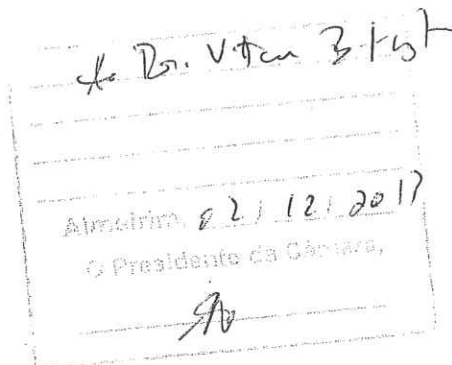 Ao Dr. Vítor
Almeirim, 02/12/2017
O Presidente da Câmara,